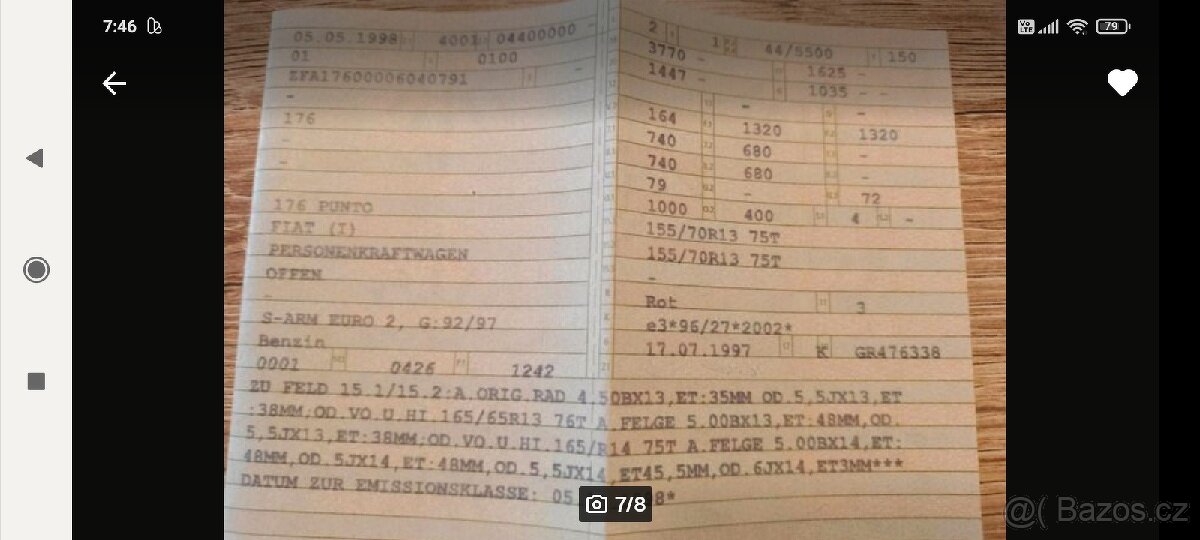 7:46
79
05.05.1998 4001 04400000 -
01 0100
ZFA17600006040791 -
-
176
-
-
176 PUNTO
FIAT (I)
PERSONENKRAFTWAGEN
OFFEN
-
S-ARM EURO 2, G:92/97
Benzin
0001 0426 1242
2 1 44/5500 150
3770 - 1625 -
1447 - 1035 - -
- -
164 1320 1320
740 680 -
740 680 -
79 - 72
1000 400 4 -
155/70R13 75T
155/70R13 75T
-
Rot 3
e3*96/27*2002*
17.07.1997 K GR476338
ZU FELD 15.1/15.2:A.ORIG.RAD 4.50BX13,ET:35MM OD.5,5JX13,ET
:38MM,OD.VO.U.HI.165/65R13 76T A FELGE 5.00BX13,ET:48MM,OD.
5,5JX13,ET:38MM,OD.VO.U.HI.165/R14 75T A.FELGE 5.00BX14,ET:
48MM,OD.5JX14,ET:48MM,OD.5,5JX14,ET45,5MM,OD.6JX14,ET3MM***
DATUM ZUR EMISSIONSKLASSE: 05. 8*
7/8
@( Bazos.cz